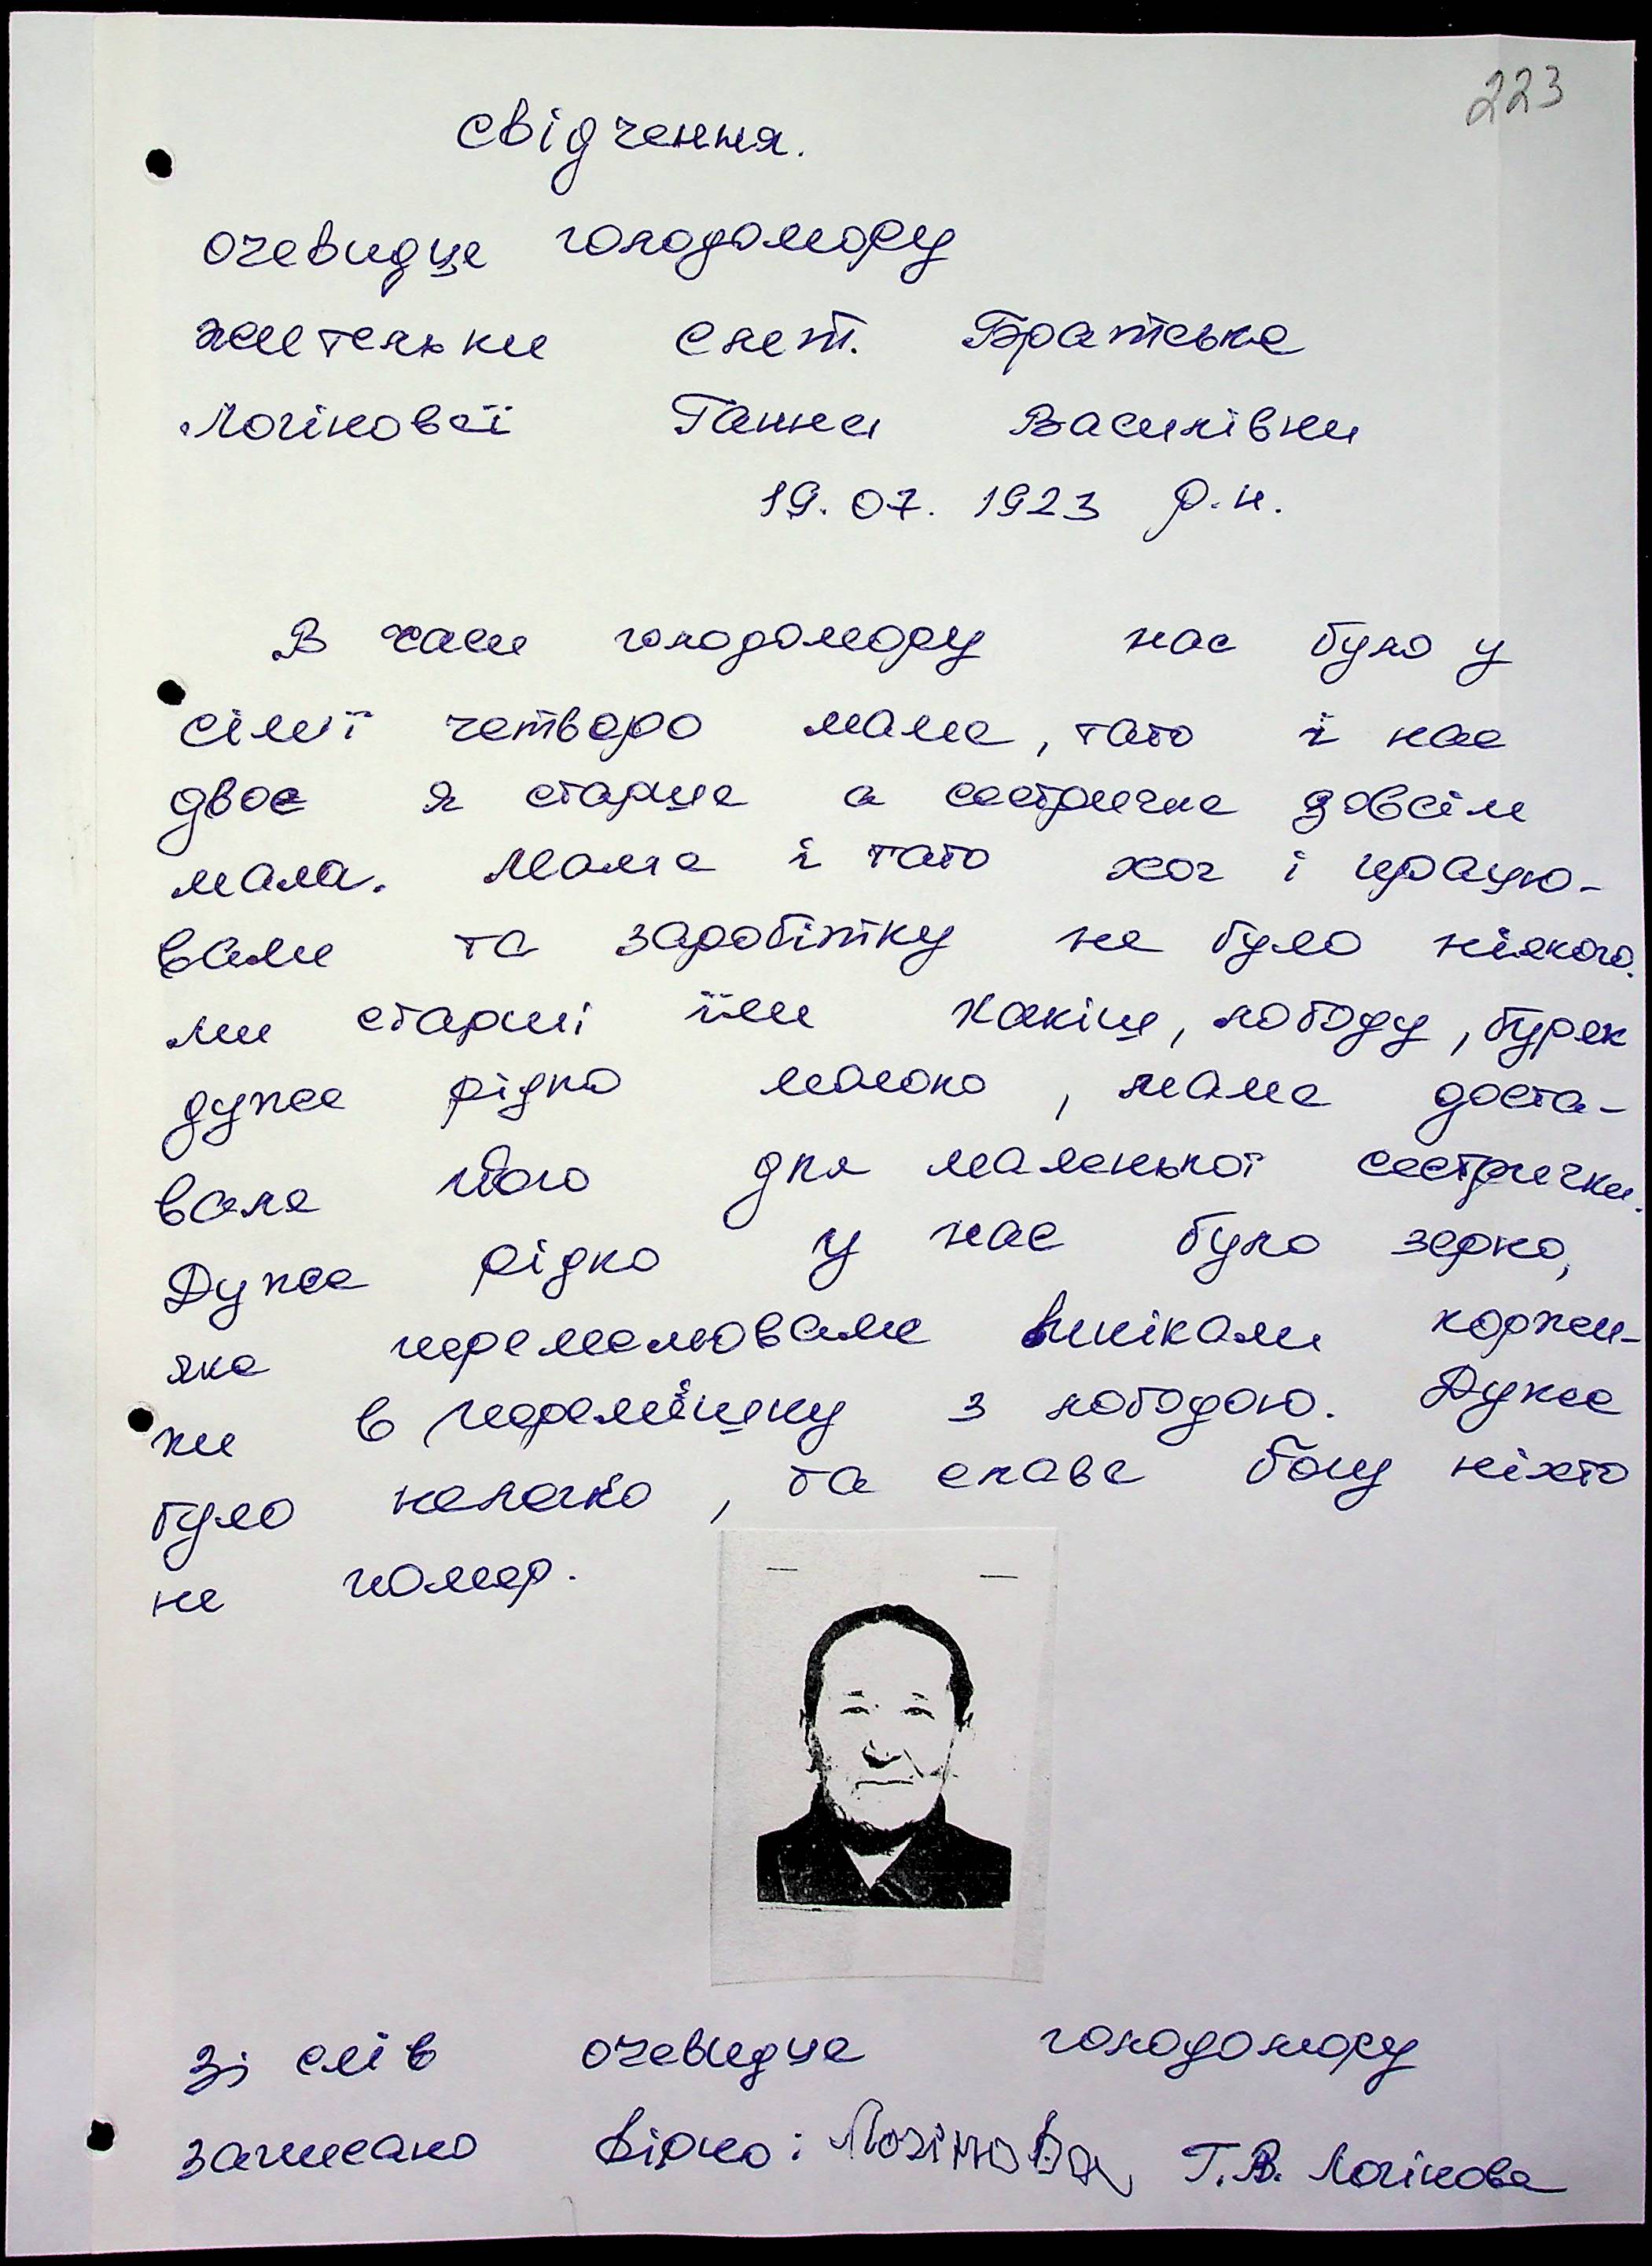 223
Свідчення.
очевидця голодомору
жительки смт. Братське
Логінової Ганни Василівни
19.07.1923 р.н.
В часи голодомору нас було у
сім'ї четверо мама, тато і нас
двоє я старша а сестричка зовсім
мала. Мама і тато хоч і працю-
вали та заробітку не було ніякого.
ми старші їли качіш, лободу, буряк
дуже рідко молоко, мама доста-
вала його для маленької сестрички.
Дуже рідко у нас було зерно,
яке перемелювали випікали коржи-
ки в перемішку з лободою. Дуже
було нелегко, та слава богу ніхто
не помер.
Зі слів очевидця голодомору
записано вірно: Логінова Г.В. Логінова